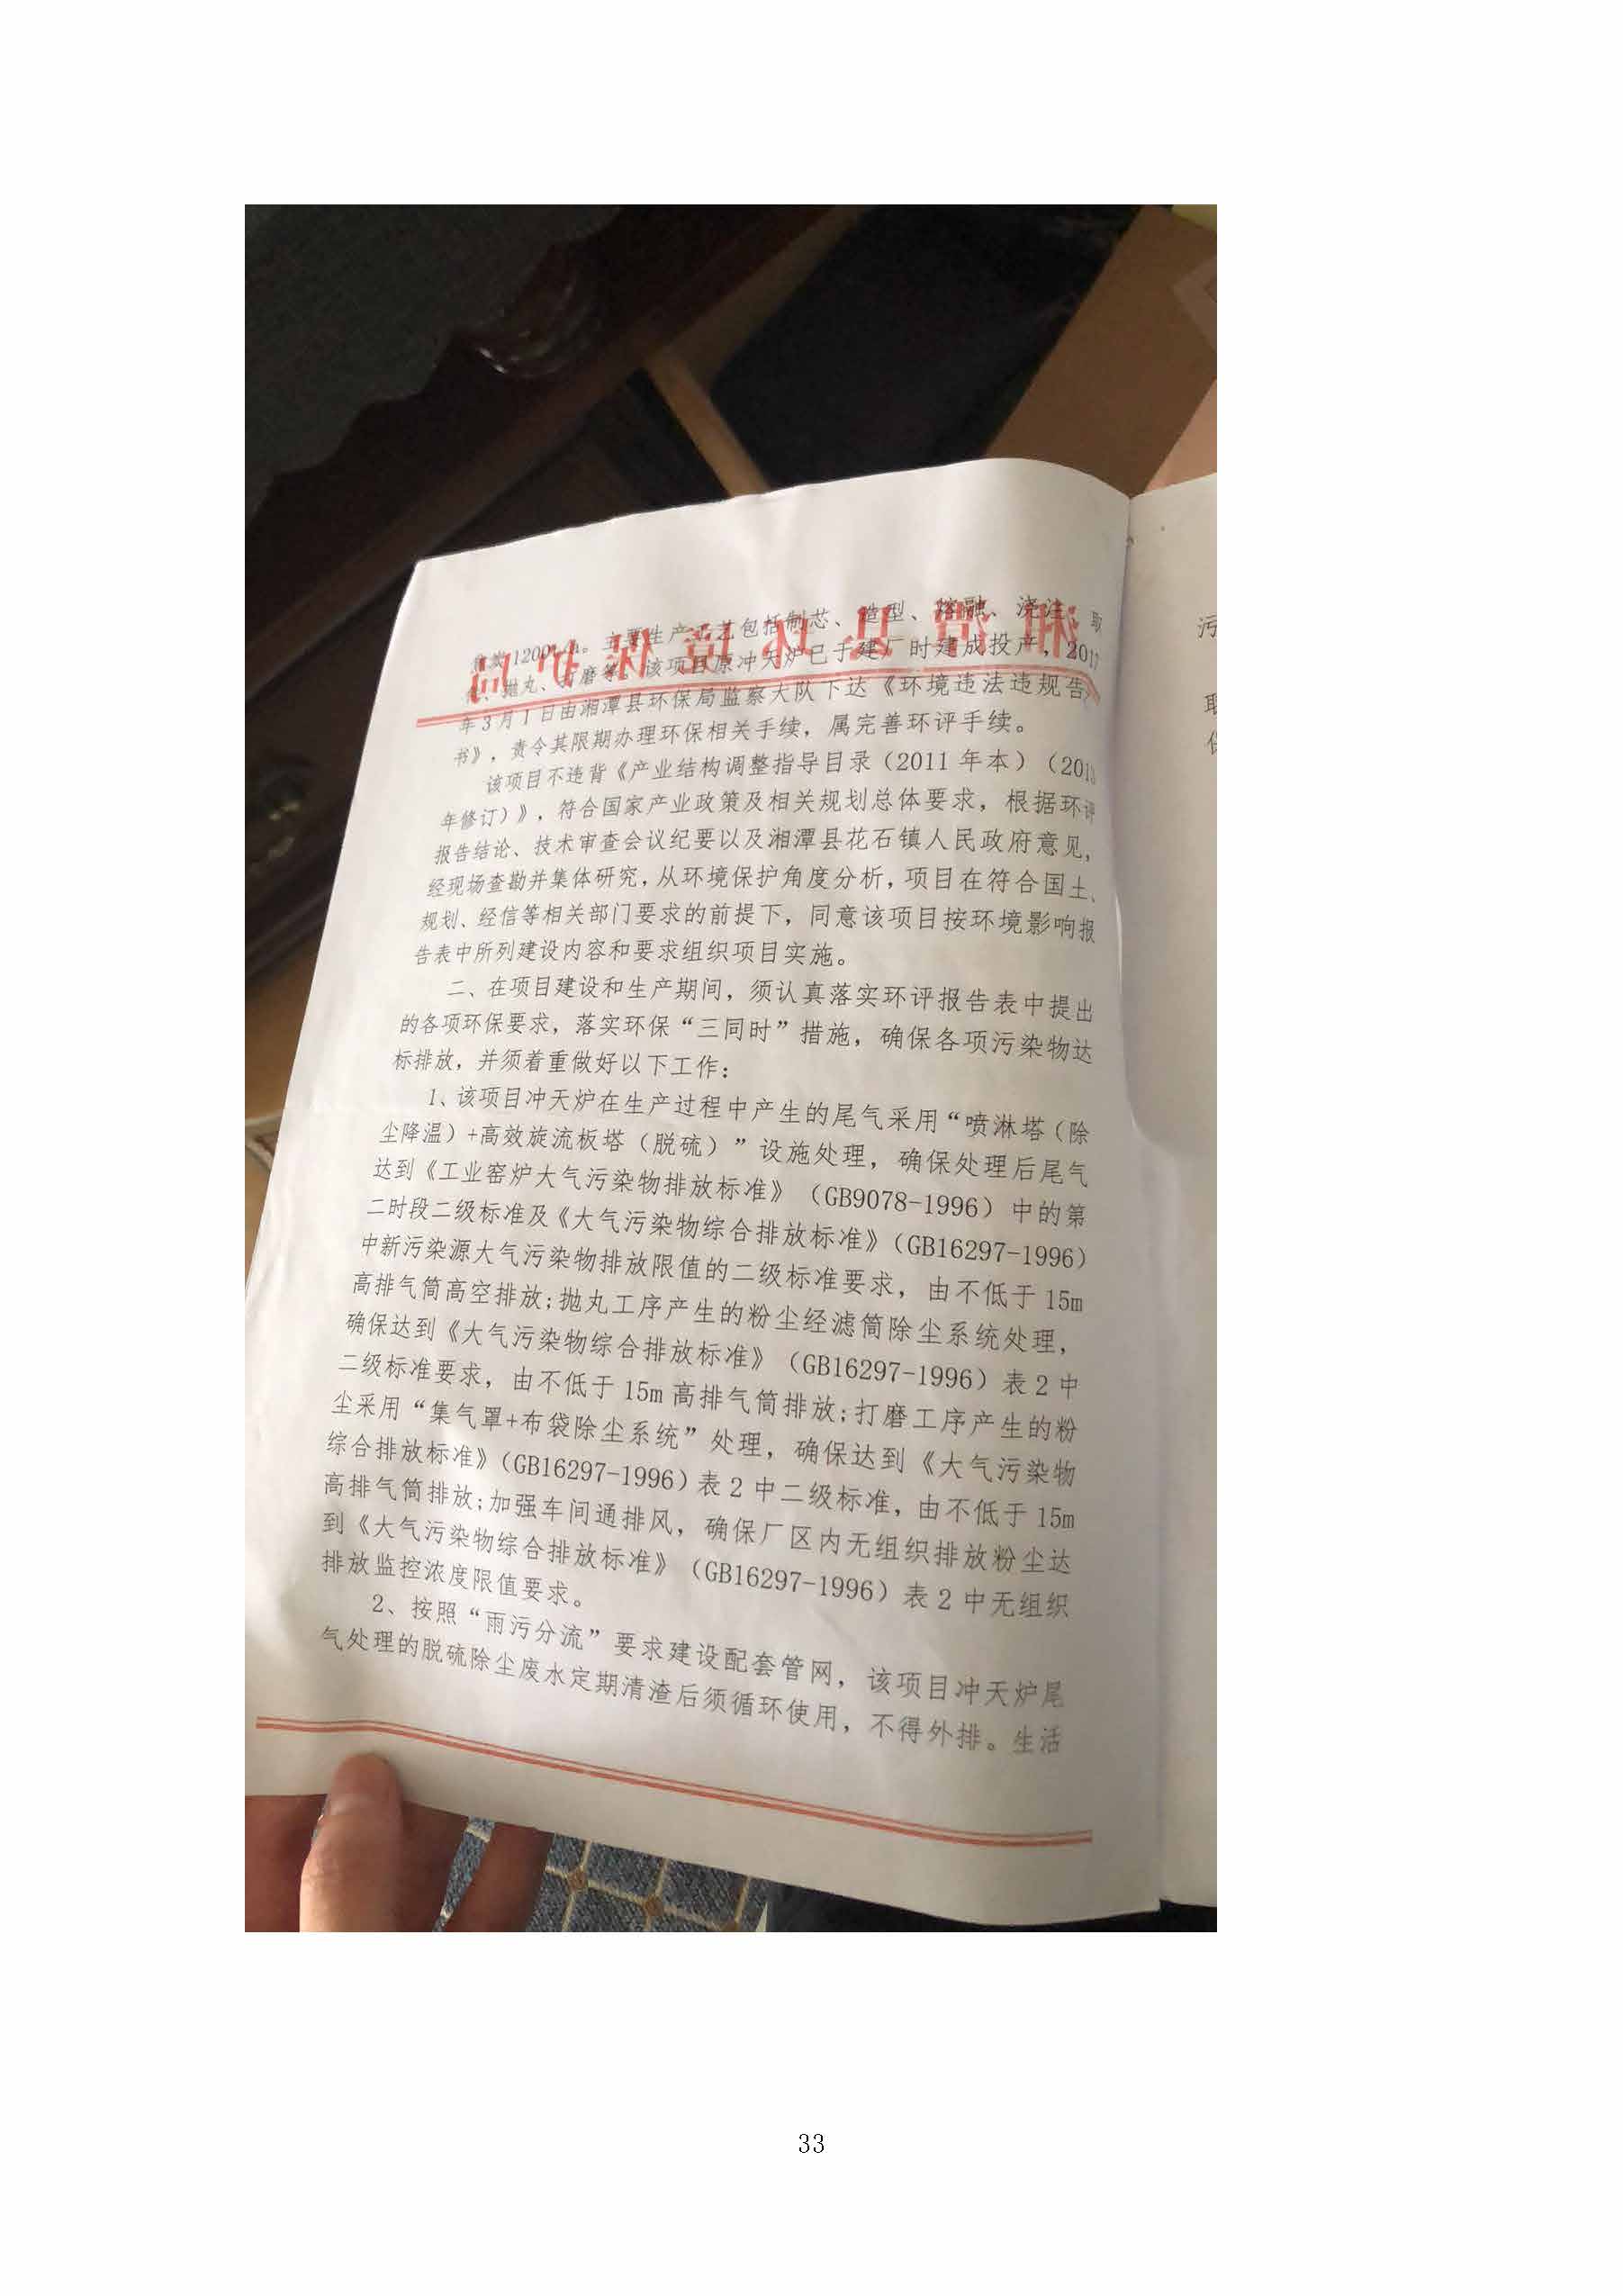 焦炭1200t/a。主要生产工艺包括制芯、造型、熔融、浇注、取
件、抛丸、打磨等。该项目原冲天炉已于建厂时建成投产，2017
年3月1日由湘潭县环保局监察大队下达《环境违法违规告
书》，责令其限期办理环保相关手续，属完善环评手续。
该项目不违背《产业结构调整指导目录（2011年本）（2013
年修订）》，符合国家产业政策及相关规划总体要求，根据环评
报告结论、技术审查会议纪要以及湘潭县花石镇人民政府意见，
经现场查勘并集体研究，从环境保护角度分析，项目在符合国土、
规划、经信等相关部门要求的前提下，同意该项目按环境影响报
告表中所列建设内容和要求组织项目实施。
二、在项目建设和生产期间，须认真落实环评报告表中提出
的各项环保要求，落实环保“三同时”措施，确保各项污染物达
标排放，并须着重做好以下工作：
1、该项目冲天炉在生产过程中产生的尾气采用“喷淋塔（除
尘降温）+高效旋流板塔（脱硫）”设施处理，确保处理后尾气
达到《工业窑炉大气污染物排放标准》（GB9078-1996）中的第
二时段二级标准及《大气污染物综合排放标准》（GB16297-1996）
中新污染源大气污染物排放限值的二级标准要求，由不低于15m
高排气筒高空排放;抛丸工序产生的粉尘经滤筒除尘系统处理，
确保达到《大气污染物综合排放标准》（GB16297-1996）表2中
二级标准要求，由不低于15m高排气筒排放;打磨工序产生的粉
尘采用“集气罩+布袋除尘系统”处理，确保达到《大气污染物
综合排放标准》（GB16297-1996）表2中二级标准，由不低于15m
高排气筒排放;加强车间通排风，确保厂区内无组织排放粉尘达
到《大气污染物综合排放标准》（GB16297-1996）表2中无组织
排放监控浓度限值要求。
2、按照“雨污分流”要求建设配套管网，该项目冲天炉尾
气处理的脱硫除尘废水定期清渣后须循环使用，不得外排。生活
污
33